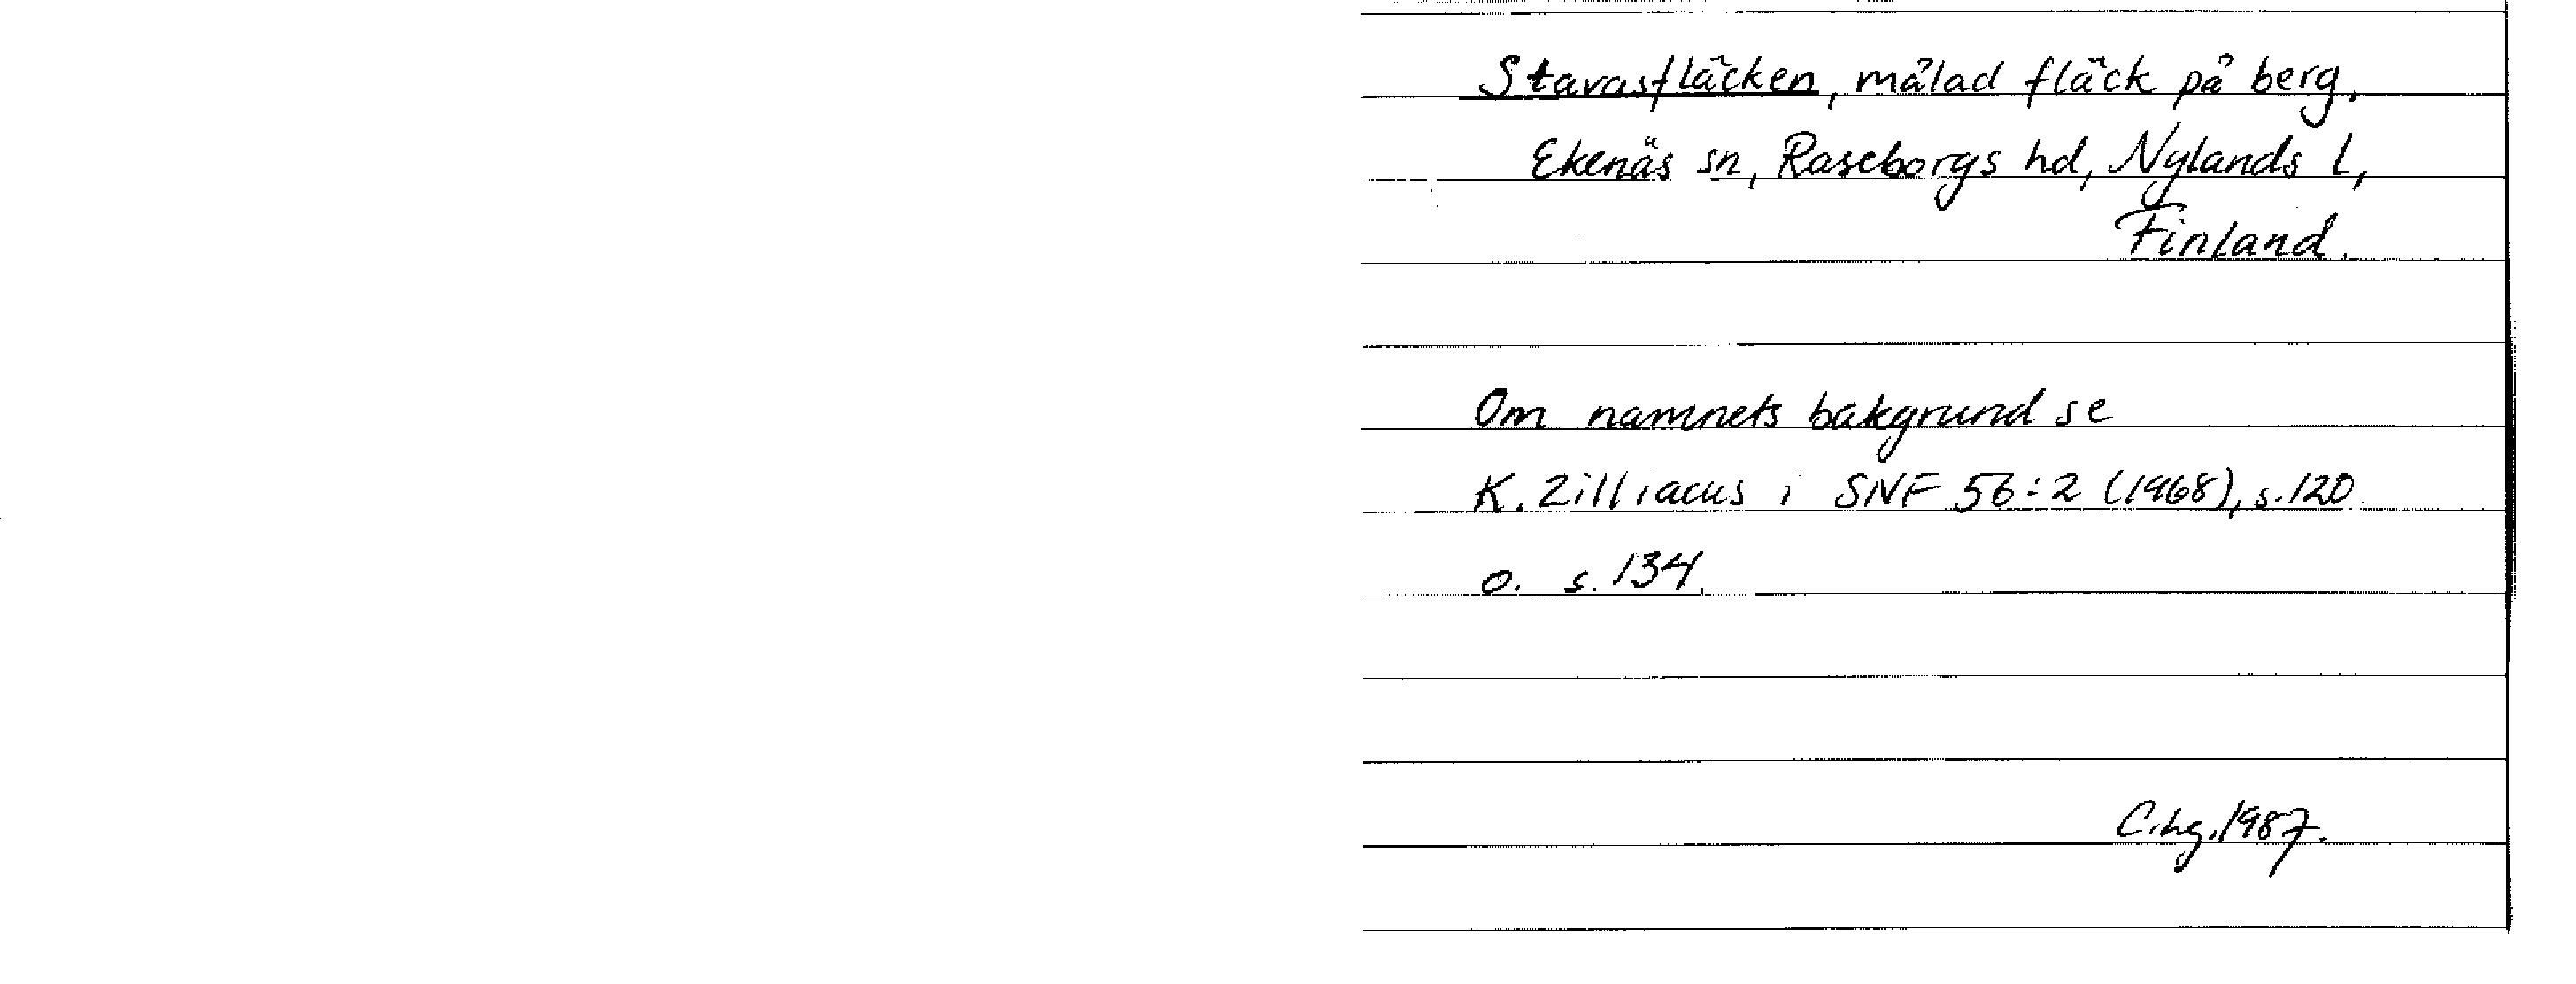 Stavasfläcken, målad fläck på berg,
Ekenäs sn, Raseborgs hd, Nylands l,
Finland.
Om namnets bakgrund se
K. Zilliacus i SNF 56:2 (1968), s. 120
o. s. 134.
C.hg. 1987.